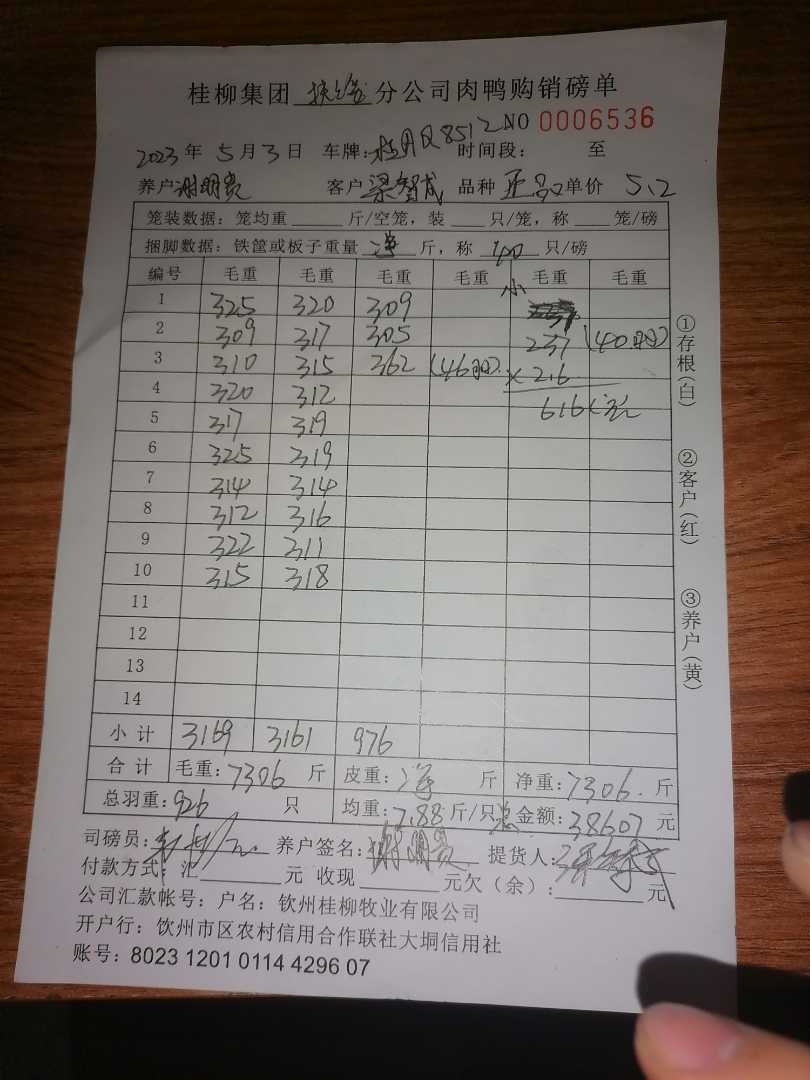 桂柳集团 扶绥 分公司肉鸭购销磅单
NO 0006536
2023 年 5 月 3 日 车牌: 8512 时间段: 至
养户 谢明贵 客户 梁智成 品种 单价 5.2
笼装数据: 笼均重 斤/空笼, 装 只/笼, 称 笼/磅
捆脚数据: 铁筐或板子重量 净 斤, 称 40 只/磅
编号 毛重 毛重 毛重 毛重 小 毛重 毛重
1 325 320 309
2 309 317 305 237 (40羽)
3 310 315 362 (46羽) × 2.6
4 320 312 616
5 317 319
6 325 319
7 314 314
8 312 316
9 322 311
10 315 318
11
12
13
14
小计 3169 3161 976
合计 毛重: 7306 斤 皮重: 净 斤 净重: 7306 斤
总羽重: 926 只 均重: 7.88 斤/只 总金额: 38607 元
司磅员: 养户签名: 谢明贵 提货人:
付款方式: 汇 元 收现 元欠(余): 元
公司汇款帐号: 户名: 钦州桂柳牧业有限公司
开户行: 钦州市区农村信用合作联社大垌信用社
账号: 8023 1201 0114 4296 07
①存根(白)
②客户(红)
③养户(黄)